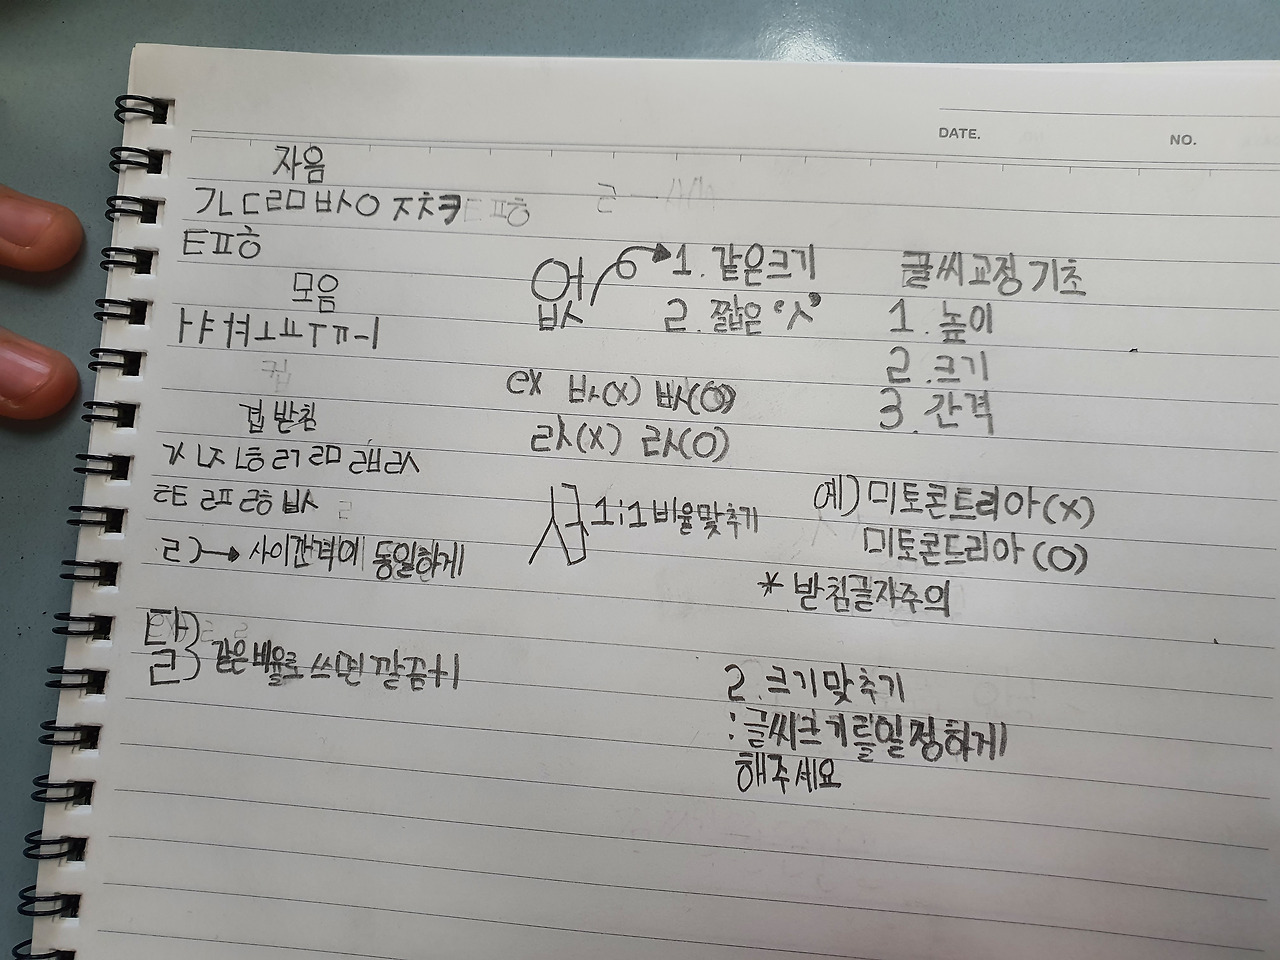 DATE.
NO.
자음
ㄱㄴㄷㄹㅁㅂㅅㅇㅈㅊㅋ
ㅌㅍㅎ
모음
ㅏㅑㅕㅓㅗㅛㅜㅠㅡㅣ
겹받침
ㄳ ㄵ ㄶ ㄺ ㄻ ㄼ ㄽ
ㄾ ㄿ ㅀ ㅄ
ㄹ)→사이간격에 동일하게
달) 같은 비율로 쓰면 깔끔
없
1. 같은크기
2. 짧은 "ㅅ"
ex ㅄ(X) ㅄ(O)
ㄽ(X) ㄽ(O)
1:1비율맞추기
글씨교정기초
1. 높이
2. 크기
3. 간격
예) 미토콘트리아(X)
미토콘드리아(O)
* 받침글자주의
2. 크기맞추기
:글씨크기를일정하게
해주세요